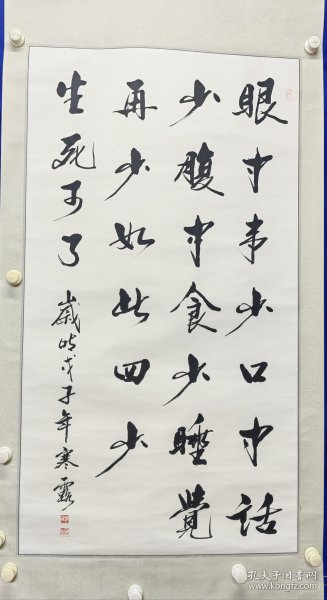 眼中事少口中话
少腹中食少睡觉
再少如此四少
生死可了
岁时戊子年寒露
孔夫子旧书网